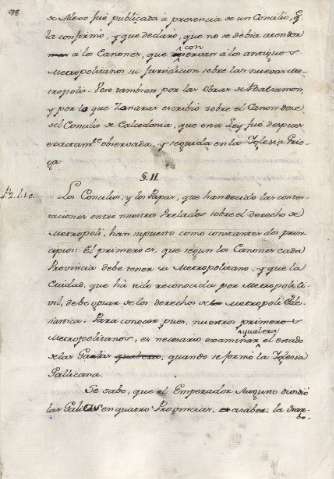 de Mileo fué publicada á presencia de un Concilio, q.
la confirmó, y que declaró, que no se debia atender
a los Canones, que con
servan a los antiguos
Metropolitanos su Jurisdicion sobre las nuevas me-
tropolis. Pero tambien por las Obras de Balsamon,
y por lo que Zonaras escribió sobre el Canon doce
del Concilio de Calcedonia, que esta Ley fué despues
exactam.te observada, y seguida en la Iglesia Grie-
ga.
§. II.
Los Concilios, y los Papas, que han decidido las contes-
taciones entre nuestros Prelados sobre el derecho de
Metropoli, han supuesto como constantes dos prin-
cipios: El primero es, que segun los Canones cada
Provincia debe tener su Metropolitano, y que la
Ciudad, que ha sido reconocida por Metropoli Ci-
vil, debe gozar de los derechos de Metropoli Ecle-
siastica. Para conocer pues, nuestros primeros
Metropolitanos, es necesario examinar el estado
de las Galias, quando se formó la Iglesia
Gallicana.
Se sabe, que el Emperador Augusto dividió
las Galias en quatro Provincias, a saber: la Narbo-